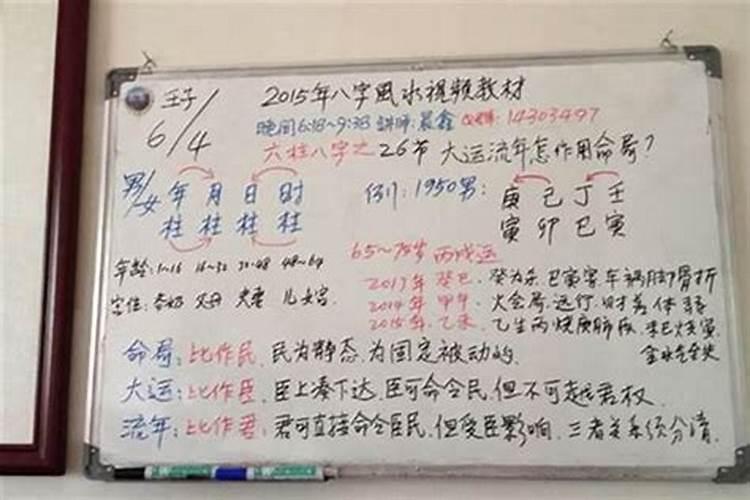 壬子 2015年八字風水視頻教材
6/4 晚间6:18~9:38 講师:晨鑫 Q羣:14303497
六柱八字之26节 大运流年怎作用命局?
男/女 年 月 日 时
柱 柱 柱 柱
例:1950男: 庚 己 丁 壬
寅 卯 巳 寅
65~75岁 丙戌运
年龄:1~16 16~32 32~48 48~64
宫位: 父母 夫妻 儿女宫
癸巳. 癸为杀.巳寅害.车祸脚骨折
2014年 甲午. 火会局.远行.财差体弱
2015年.乙未. 乙生丙
命局:比作民. 民为静态.为固定被动的.
大运:比作臣. 臣上凑下达.臣可命令民.但不可越君权.
流年:比作君: 君可直接命令臣民.但受臣影响.三者关系须分清.